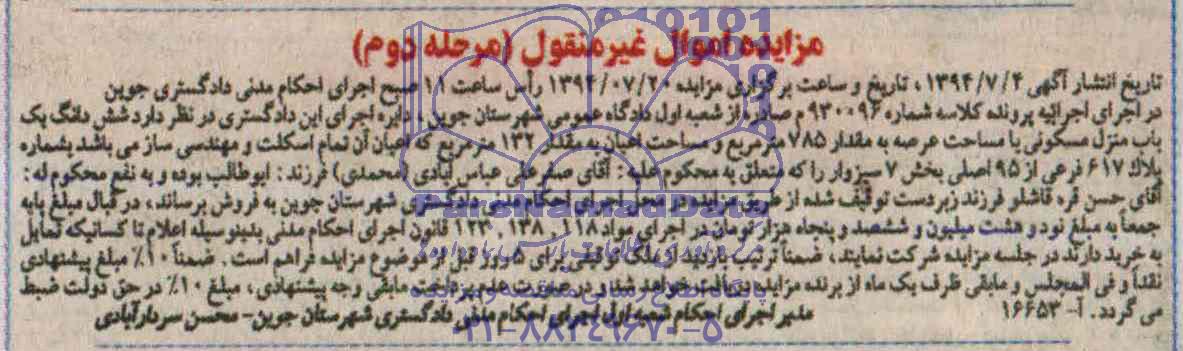 مزایده اموال غیرمنقول (مرحله دوم)
تاریخ انتشار آگهی ۱۳۹۴/۷/۴ ، تاریخ و ساعت برگزاری مزایده ۱۳۹۴/۰۷/۲۰ رأس ساعت ۱۱ صبح اجرای احکام مدنی دادگستری جوین
در اجرای اجرائیه پرونده کلاسه شماره ۹۳۰۰۹۶ م صادره از شعبه اول دادگاه عمومی شهرستان جوین ، دایره اجرای این دادگستری در نظر دارد شش دانگ یک
باب منزل مسکونی با مساحت عرصه به مقدار ۷۸۵ مترمربع و مساحت اعیان به مقدار ۱۳۲ مترمربع که اعیان آن تمام اسکلت و مهندسی ساز می باشد بشماره
پلاک ۶۱۷ فرعی از ۹۵ اصلی بخش ۷ سبزوار را که متعلق به محکوم علیه : آقای صفرعلی عباس آبادی (محمدی) فرزند : ابوطالب بوده و به نفع محکوم له :
آقای حسن قره قاشلو فرزند زبردست توقیف شده از طریق مزایده در محل اجرای احکام مدنی دادگستری شهرستان جوین به فروش برساند، در قبال مبلغ پایه
جمعاً به مبلغ نود و هشت میلیون و ششصد و پنجاه هزار تومان در اجرای مواد ۱۱۸ ، ۱۳۸ ، ۱۲۳ قانون اجرای احکام مدنی بدینوسیله اعلام تا کسانیکه تمایل
به خرید دارند در جلسه مزایده شرکت نمایند، ضمناً ترتیب بازدید از ملک توقیفی برای ۵ روز قبل از موضوع مزایده فراهم است . ضمناً ۱۰٪ مبلغ پیشنهادی
نقداً و فی المجلس و مابقی ظرف یک ماه از برنده مزایده دریافت خواهد شد و در صورت عدم پرداخت مابقی وجه پیشنهادی، مبلغ ۱۰٪ در حق دولت ضبط
می گردد. آ- ۱۶۶۵۳
مدیر اجرای احکام شعبه اول اجرای احکام مدنی دادگستری شهرستان جوین- محسن سردارآبادی
ParsNamadData
۰۲۱-۸۸۳۴۹۶۷۰-۵